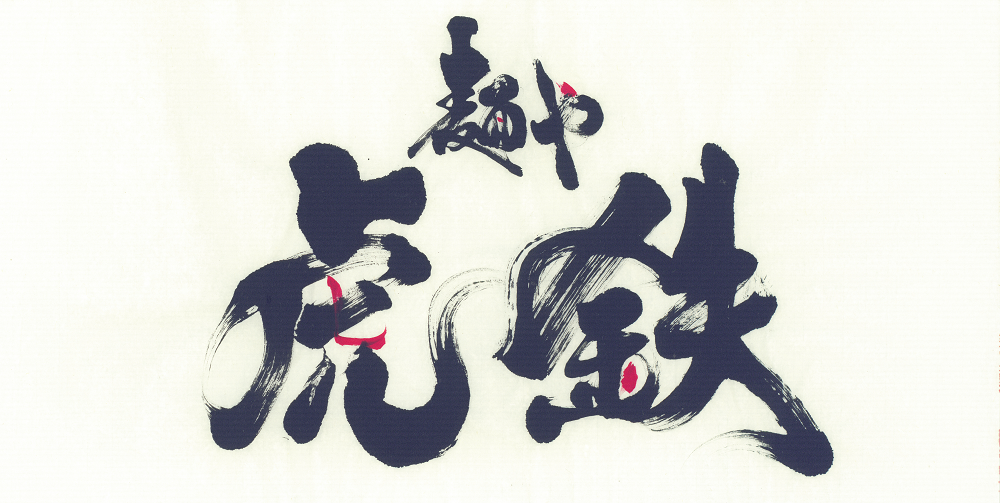 麺や
虎鉄